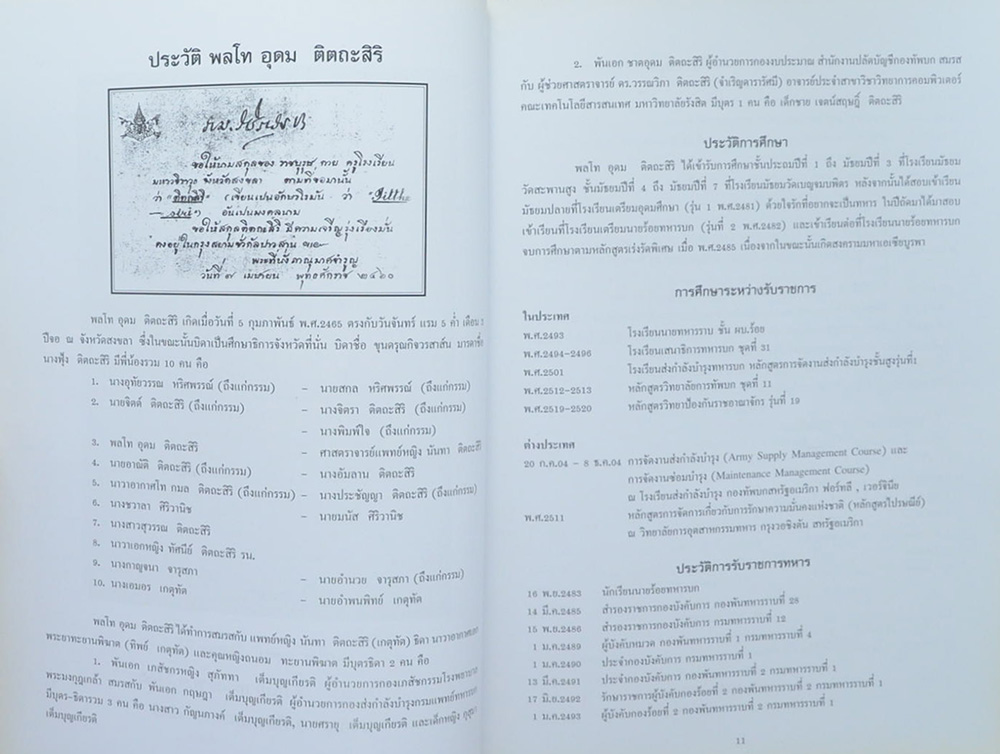 ประวัติ พลโท อุดม ติตถะสิริ
ขอให้นามสกุลของ ราชบุรุษ ถาย ครูโรงเรียน
มหาวชิราวุธ จังหวัดสงขลา ตามที่ขอมานั้น
ว่า "ติตถสิริ" (เขียนเปนอักษรโรมัน ว่า "Tittha
อันเปนมงคลนาม
ขอให้สกุลติตถะสิริ มีความเจริญรุ่งเรืองมั่น
คงอยู่ในกรุงสยามชั่วกัลปาวสาน
พระที่นั่งภาณุมาศจำรูญ
วันที่ ๗ เมษายน พุทธศักราช ๒๔๖๐
พลโท อุดม ติตถะสิริ เกิดเมื่อวันที่ 5 กุมภาพันธ์ พ.ศ.2465 ตรงกับวันจันทร์ แรม 5 ค่ำ เดือน
ปีจอ ณ จังหวัดสงขลา ซึ่งในขณะนั้นบิดาเป็นศึกษาธิการจังหวัดที่นั่น บิดาชื่อ ขุนดรุณกิจวรสาส์น มารดาชื่อ
นางฟุ้ง ติตถะสิริ มีพี่น้องรวม 10 คน คือ
1. นางอุทัยวรรณ หวิศพรรณ์ (ถึงแก่กรรม) – นายสกล หวิศพรรณ์ (ถึงแก่กรรม)
2. นายจิตต์ ติตถะสิริ (ถึงแก่กรรม) – นางจิตรา ติตถะสิริ (ถึงแก่กรรม)
– นางพิมพ์ใจ (ถึงแก่กรรม)
3. พลโท อุดม ติตถะสิริ – ศาสตราจารย์แพทย์หญิง นันทา ติตถะสิริ
4. นายอาณัติ ติตถะสิริ (ถึงแก่กรรม) – นางอัมลาน ติตถะสิริ
5. นาวาอากาศโท กมล ติตถะสิริ (ถึงแก่กรรม) – นางประชัญญา ติตถะสิริ (ถึงแก่กรรม)
6. นางชวาลา ศิริวานิช – นายมนัส ศิริวานิช
7. นางสาวสุวรรณ ติตถะสิริ
8. นาวาเอกหญิง ทัศนีย์ ติตถะสิริ รน.
9. นางกาญจนา จารุสภา – นายอำนวย จารุสภา (ถึงแก่กรรม)
10. นางเอมอร เกตุทัต – นายอำพนพิทย์ เกตุทัต
พลโท อุดม ติตถะสิริ ได้ทำการสมรสกับ แพทย์หญิง นันทา ติตถะสิริ (เกตุทัต) ธิดา นาวาอากาศเอก
พระยาทะยานพิฆาต (ทิพย์ เกตุทัต) และคุณหญิงถนอม ทะยานพิฆาต มีบุตรธิดา 2 คน คือ
1. พันเอก เภสัชกรหญิง สุภัททา เต็มบุญเกียรติ ผู้อำนวยการกองเภสัชกรรมโรงพยาบาล
พระมงกุฎเกล้า สมรสกับ พันเอก กฤษฎา เต็มบุญเกียรติ ผู้อำนวยการกองส่งกำลังบำรุงกรมแพทย์ทหารบก
มีบุตร-ธิดารวม 3 คน คือ นางสาว กัญนภางค์ เต็มบุญเกียรติ, นายศรายุ เต็มบุญเกียรติ และเด็กหญิง
เต็มบุญเกียรติ
2. พันเอก ชาตอุดม ติตถะสิริ ผู้อำนวยการกองงบประมาณ สำนักงานปลัดบัญชีกองทัพบก สมรส
กับ ผู้ช่วยศาสตราจารย์ ดร.วรรณวิภา ติตถะสิริ (จำเริญดารารัศมี) อาจารย์ประจำสาขาวิชาวิทยาการคอมพิวเตอร์
คณะเทคโนโลยีสารสนเทศ มหาวิทยาลัยรังสิต มีบุตร 1 คน คือ เด็กชาย เจตน์สฤษฎิ์ ติตถะสิริ
ประวัติการศึกษา
พลโท อุดม ติตถะสิริ ได้เข้ารับการศึกษาชั้นประถมปีที่ 1 ถึง มัธยมปีที่ 3 ที่โรงเรียนมัธยม
วัดสะพานสูง ชั้นมัธยมปีที่ 4 ถึง มัธยมปีที่ 7 ที่โรงเรียนมัธยมวัดเบญจมบพิตร หลังจากนั้นได้สอบเข้าเรียน
มัธยมปลายที่โรงเรียนเตรียมอุดมศึกษา (รุ่น 1 พ.ศ.2481) ด้วยใจรักที่อยากจะเป็นทหาร ในปีถัดมาได้มาสอบ
เข้าเรียนที่โรงเรียนเตรียมนายร้อยทหารบก (รุ่นที่ 2 พ.ศ.2482) และเข้าเรียนต่อที่โรงเรียนนายร้อยทหารบก
จบการศึกษาตามหลักสูตรเร่งรัดพิเศษ เมื่อ พ.ศ.2485 เนื่องจากในขณะนั้นเกิดสงครามมหาเอเซียบูรพา
การศึกษาระหว่างรับราชการ
ในประเทศ
พ.ศ.2493 โรงเรียนนายทหารราบ ชั้น ผบ.ร้อย
พ.ศ.2494-2496 โรงเรียนเสนาธิการทหารบก ชุดที่ 31
พ.ศ.2501 โรงเรียนส่งกำลังบำรุงทหารบก หลักสูตรการจัดงานส่งกำลังบำรุงชั้นสูงรุ่นที่1
พ.ศ.2512-2513 หลักสูตรวิทยาลัยการทัพบก ชุดที่ 11
พ.ศ.2519-2520 หลักสูตรวิทยาป้องกันราชอาณาจักร รุ่นที่ 19
ต่างประเทศ
20 ก.ค.04 - 8 ธ.ค.04 การจัดงานส่งกำลังบำรุง (Army Supply Management Course) และ
การจัดงานซ่อมบำรุง (Maintenance Management Course)
ณ โรงเรียนส่งกำลังบำรุง กองทัพบกสหรัฐอเมริกา ฟอร์ทลี , เวอร์จิเนีย
พ.ศ.2511 หลักสูตรการจัดการเกี่ยวกับการรักษาความมั่นคงแห่งชาติ (หลักสูตรไปรษณีย์)
ณ วิทยาลัยการอุตสาหกรรมทหาร กรุงวอชิงตัน สหรัฐอเมริกา
ประวัติการรับราชการทหาร
16 พ.ย.2483 นักเรียนนายร้อยทหารบก
14 มี.ค.2485 สำรองราชการกองบังคับการ กองพันทหารราบที่ 28
15 พ.ย.2486 สำรองราชการกองบังคับการ กรมทหารราบที่ 12
1 ม.ค.2489 ผู้บังคับหมวด กองพันทหารราบที่ 1 กรมทหารราบที่ 4
1 ม.ค.2490 ประจำกองบังคับการ กรมทหารราบที่ 1
13 มี.ค.2491 ประจำกองบังคับการ กองพันทหารราบที่ 2 กรมทหารราบที่ 1
17 มิ.ย.2492 รักษาราชการผู้บังคับกองร้อยที่ 2 กองพันทหารราบที่ 2 กรมทหารราบที่ 1
1 ม.ค.2493 ผู้บังคับกองร้อยที่ 2 กองพันทหารราบที่ 2 กรมทหารราบที่ 1
11